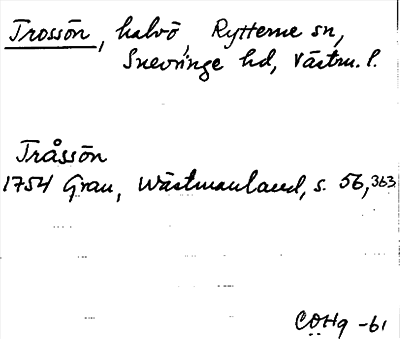 Trossön, halvö, Rytterne sn,
Snevringe hd, Västm. l.
Tråssön
1754 Grau, Wästmanland, s. 56, 363
CÖHg -61